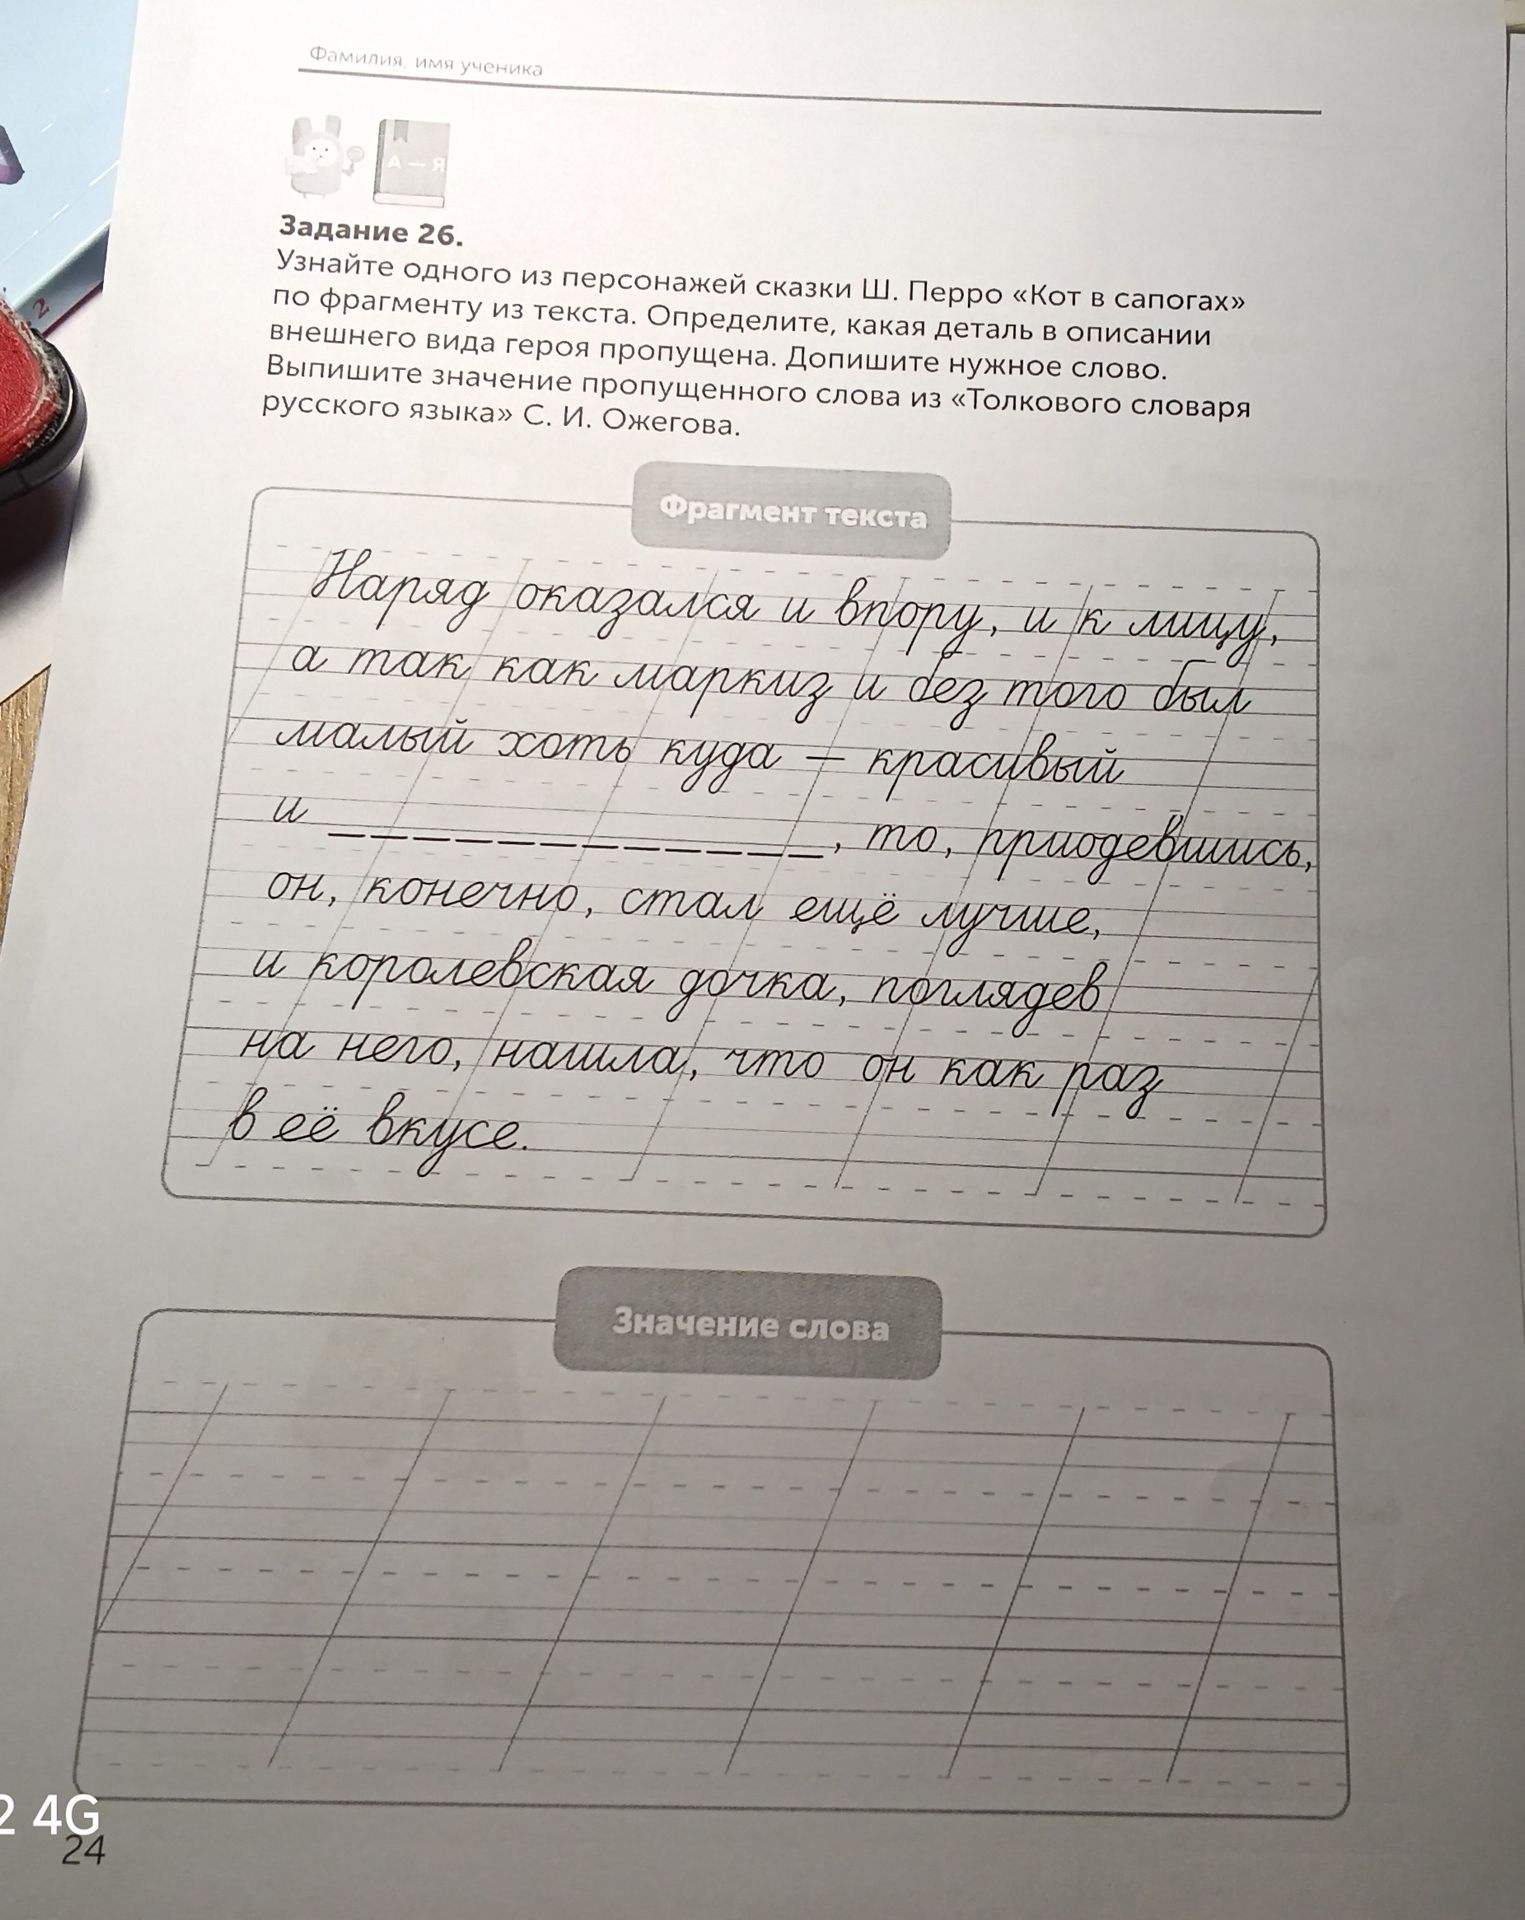 Фамилия, имя ученика
А — Я
2
Задание 26.
Узнайте одного из персонажей сказки Ш. Перро «Кот в сапогах»
по фрагменту из текста. Определите, какая деталь в описании
внешнего вида героя пропущена. Допишите нужное слово.
Выпишите значение пропущенного слова из «Толкового словаря
русского языка» С. И. Ожегова.
Фрагмент текста
Наряд оказался и впору, и к лицу,
а так как маркиз и без того был
малый хоть куда — красивый
и ____________, то, приодевшись,
он, конечно, стал ещё лучше,
и королевская дочка, поглядев
на него, нашла, что он как раз
в её вкусе.
Значение слова
2 4G
24